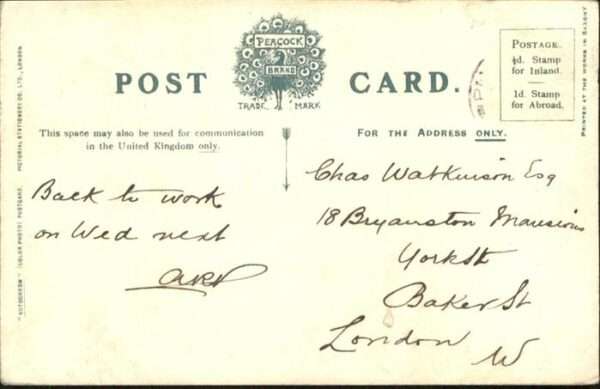 POST CARD.
PEACOCK
BRAND
TRADE MARK
POSTAGE.
½d. Stamp
for Inland.
1d. Stamp
for Abroad.
This space may also be used for communication
in the United Kingdom only.
FOR THE ADDRESS ONLY.
Back to work
on Wed next
Chas Watkinson Esq
18 Bryanston Mansions
York St
Baker St
London
W
PICTORIAL STATIONERY CO. LTD., LONDON
"AUTOCHROM" (COLOR PHOTO) POSTCARD.
PRINTED AT THE WORKS IN SAXONY